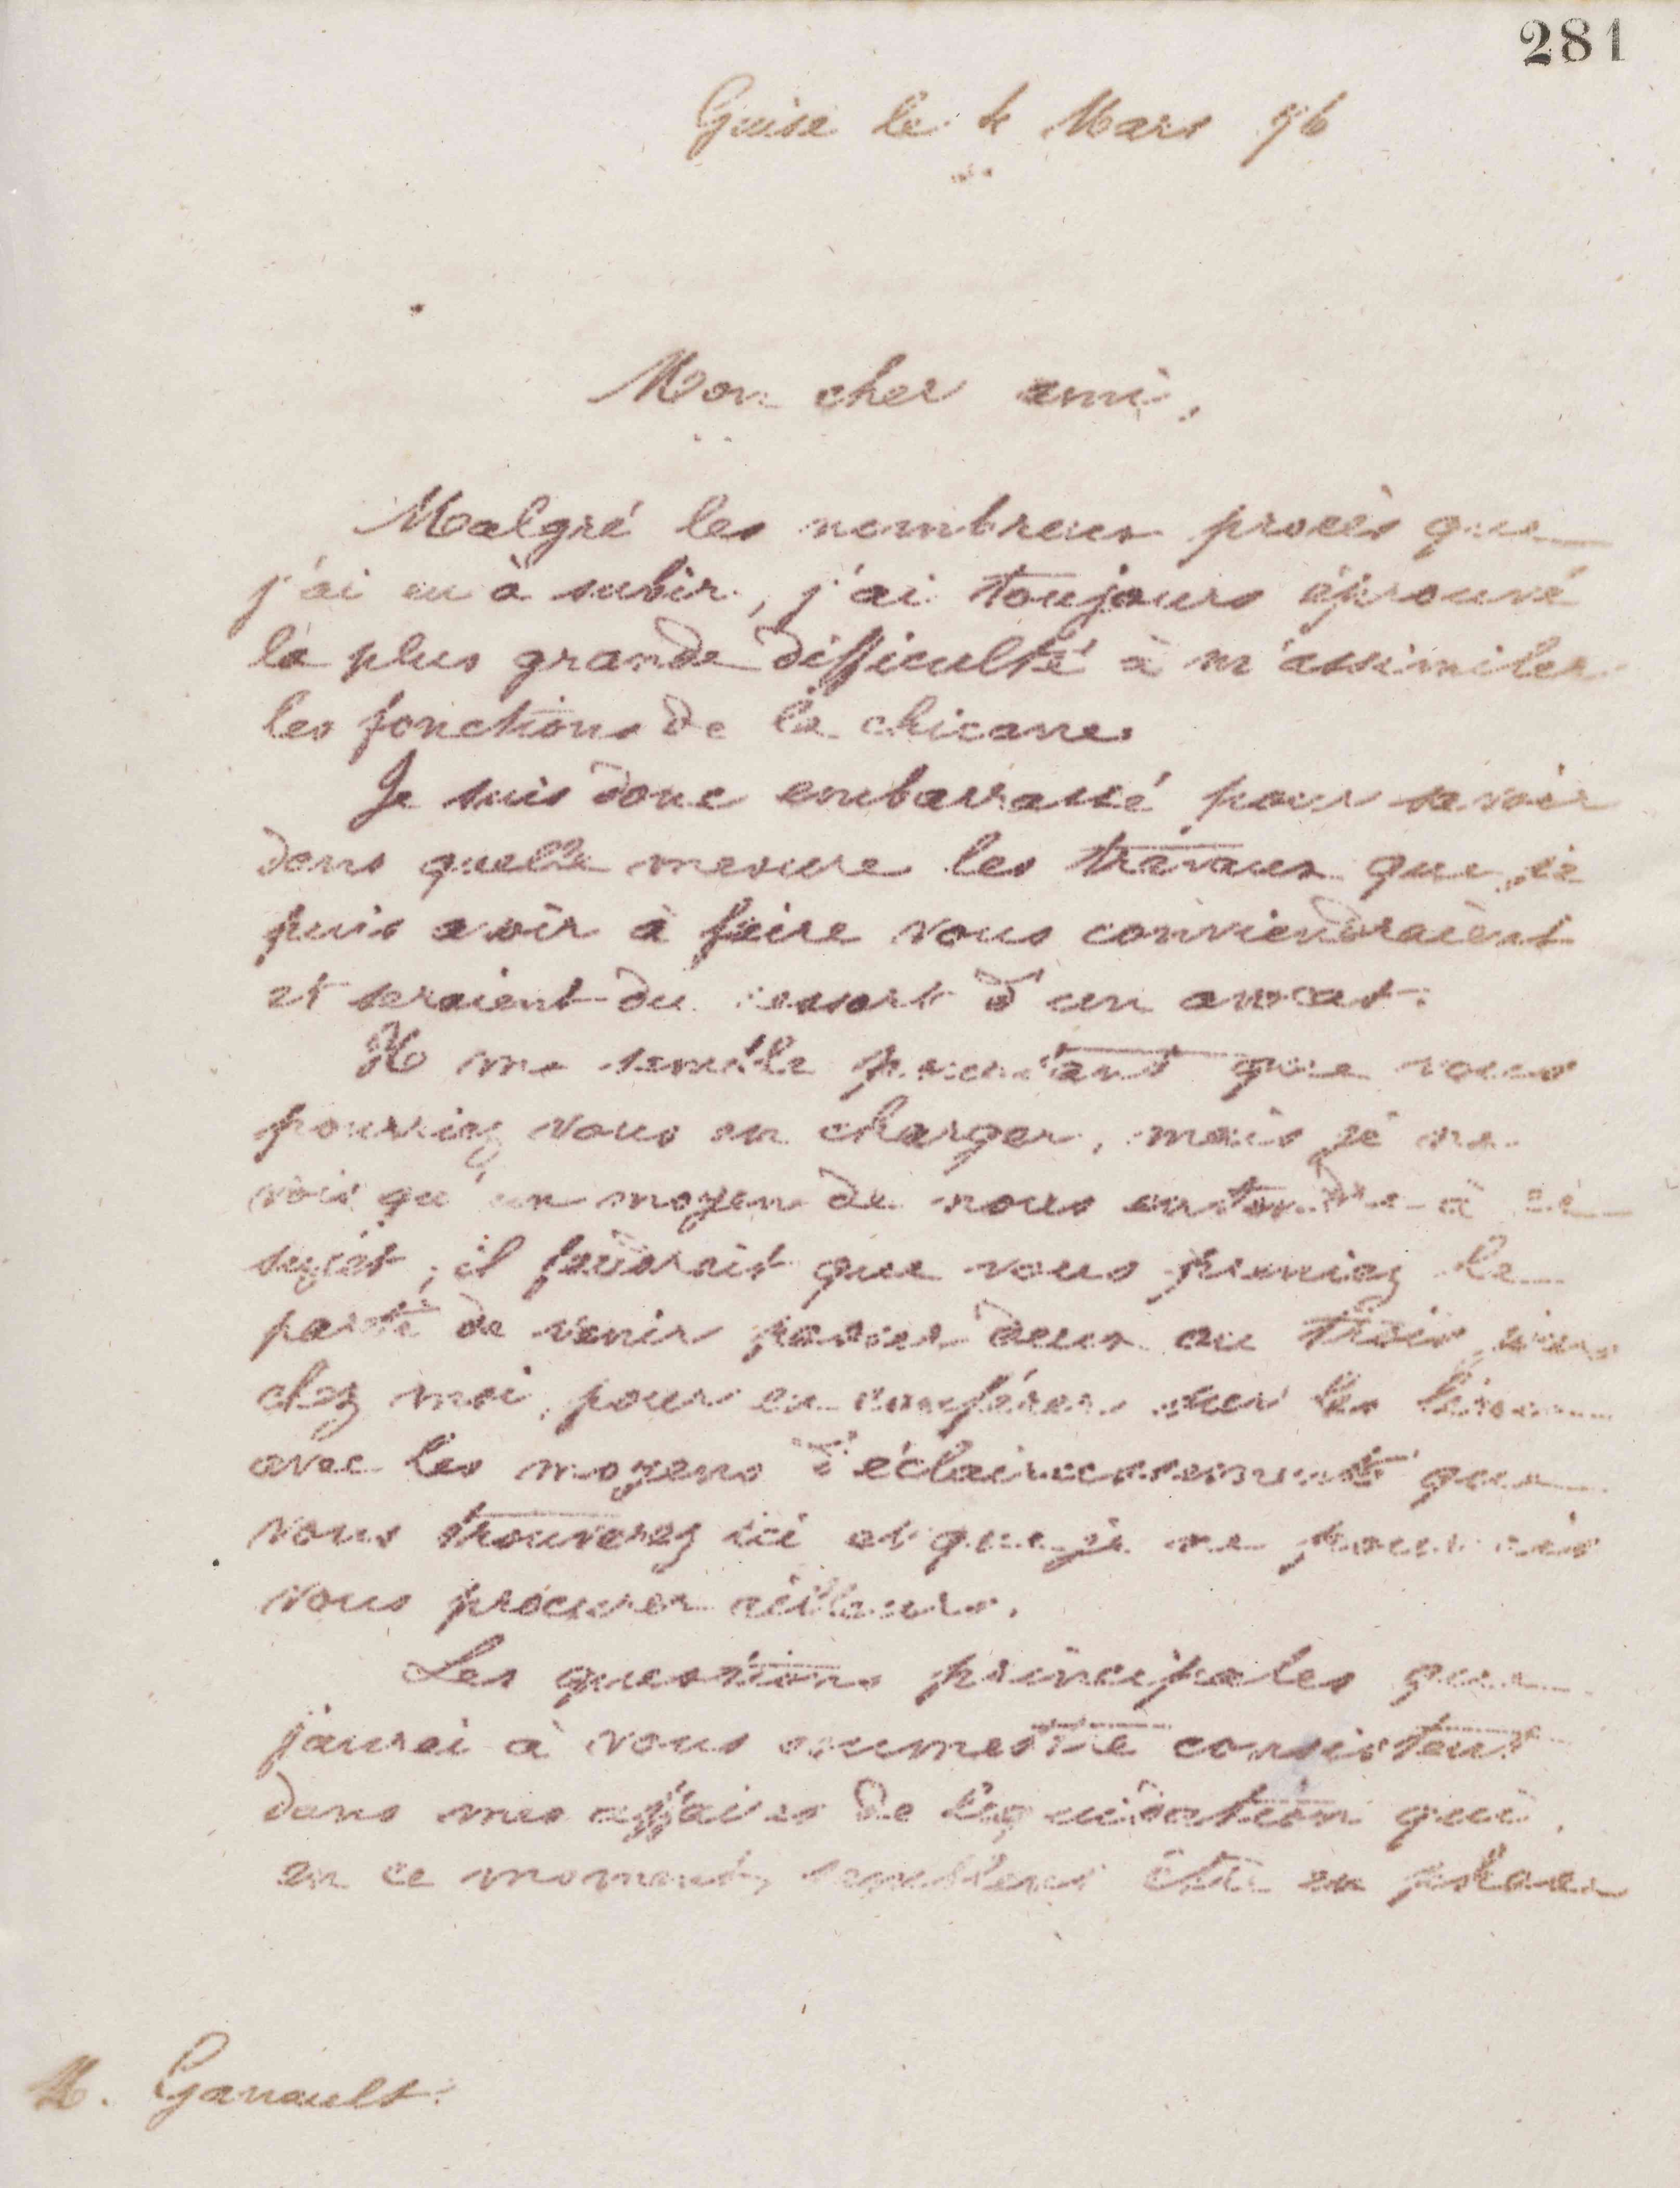 281
Guise le 4 Mars 76
Mon cher ami,
Malgré les nombreux procès que
j'ai eu à subir, j'ai toujours éprouvé
la plus grande difficulté à m'assimiler
les fonctions de la chicane.
Je suis donc embarrassé pour savoir
dans quelle mesure les travaux que je
puis avoir à faire vous conviendraient
et seraient du ressort d'un avocat.
Il me semble pourtant que vous
pourriez vous en charger, mais je ne
vois qu'un moyen de nous entendre à ce
sujet, il faudrait que vous preniez le
parti de venir passer deux ou trois jours
chez moi, pour en conférer sur les lieux
avec les moyens d'éclaircissements que
vous trouverez ici et que je ne pourrais
vous procurer ailleurs.
Les questions principales que
j'aurai à vous soumettre consistent
dans mes affaires de liquidation qui,
en ce moment, semblent être en
M. Ganault.